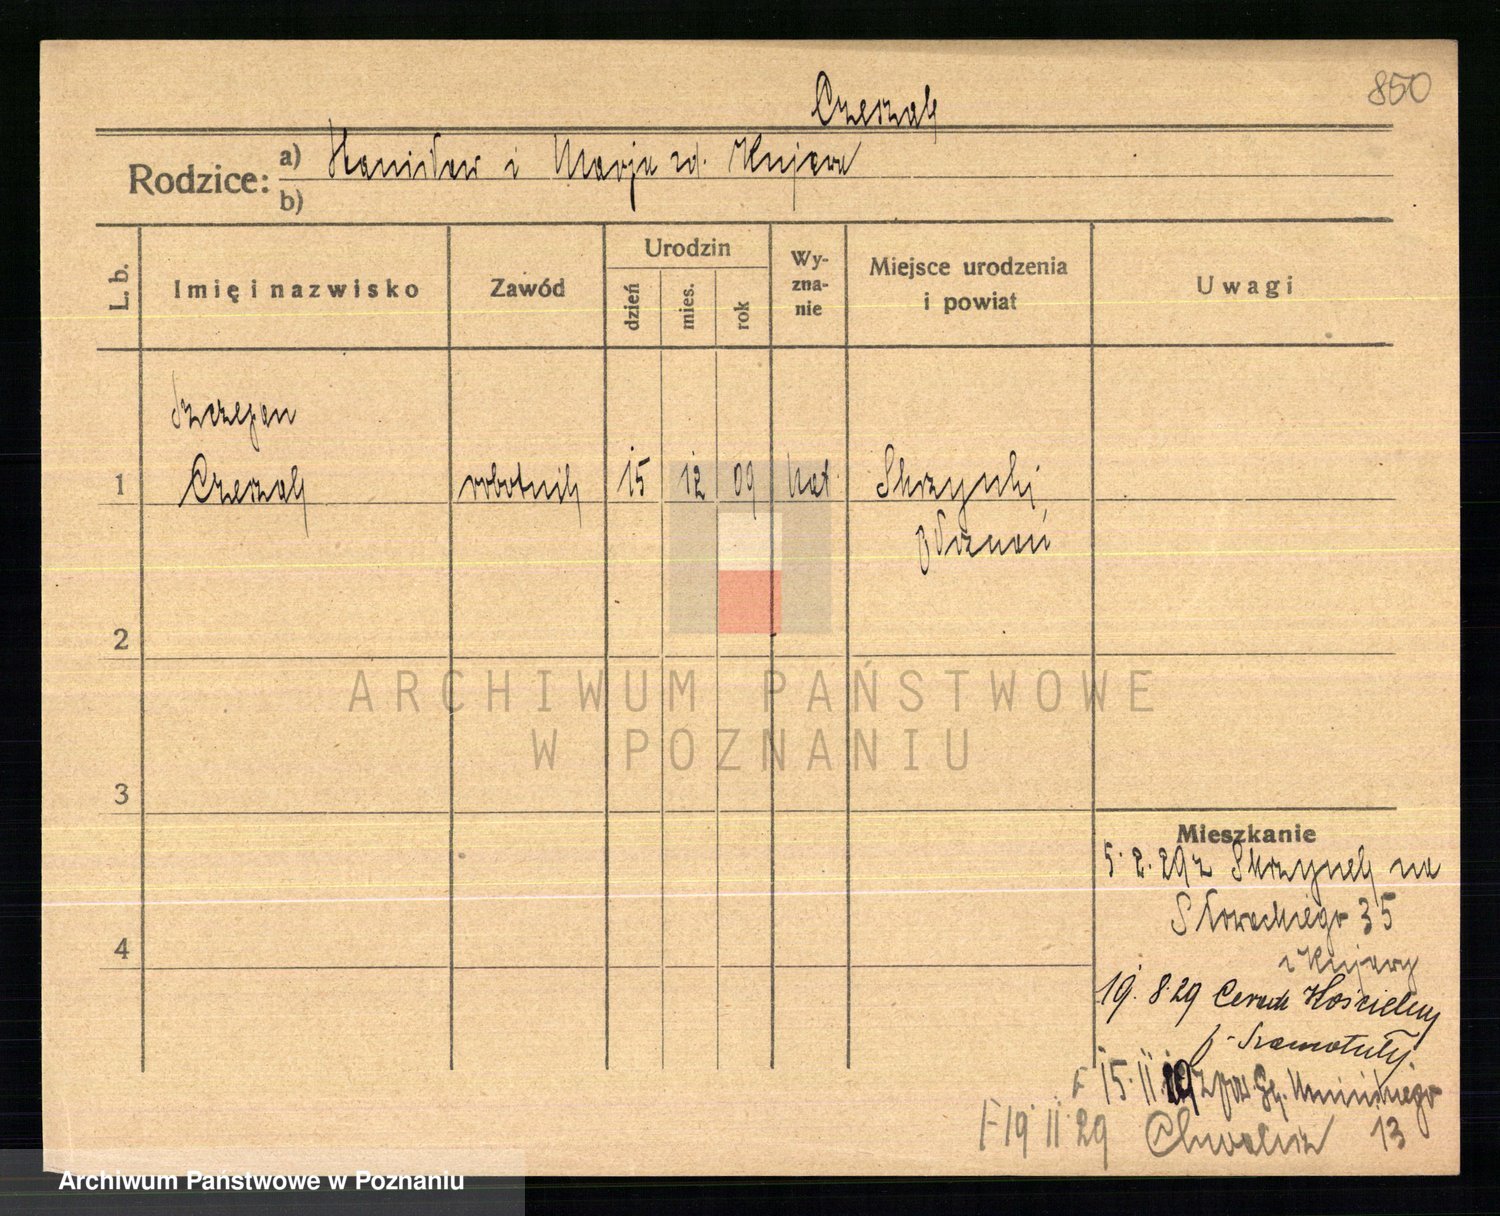 850
Czeszak
Rodzice: a) Stanisław i Marja zd. Kujawa
b)
L. b.
Imię i nazwisko
Zawód
Urodzin
dzień
mies.
rok
Wy-
zna-
nie
Miejsce urodzenia
i powiat
Uwagi
Szczepan
1 Czeszak robotnik 15 12 09 kat. Skrzynki
p Poznań
2
3
4
ARCHIWUM PAŃSTWOWE
W POZNANIU
Mieszkanie
5.2.29 z Skrzynek na
Słowackiego 35
z Kujawy
19.8.29 Cerad Kościelny
p. Szamotuły
15.11.29 z
19.11.29 13
Archiwum Państwowe w Poznaniu